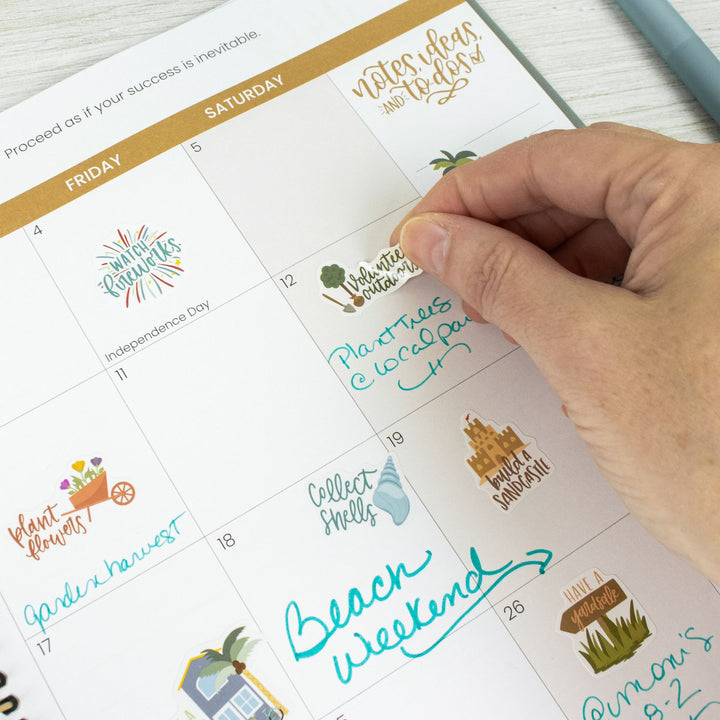 Proceed as if your success is inevitable.
FRIDAY
SATURDAY
notes, ideas,
AND to dos
4
WATCH
fireworks
Independence Day
5
12
Volunteer
outdoors
Plant Trees
@ local
11
plant
flowers
garden harvest
18
Collect
Shells
Beach
Weekend
19
build a
SANDCASTLE
17
26
HAVE A
yardsale
@ mom's
8-2